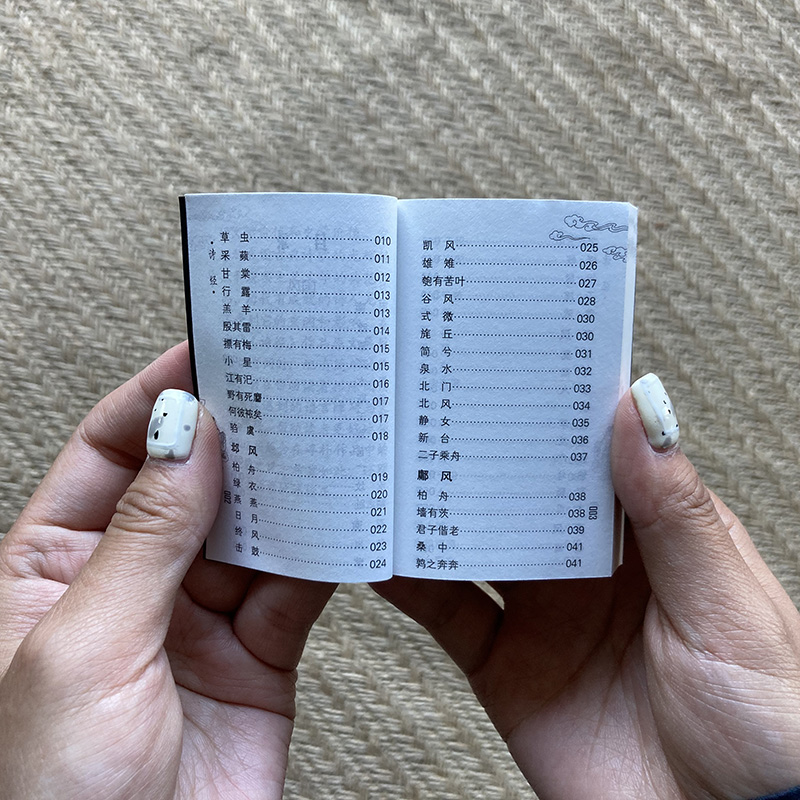 ·诗经·
草 虫……010
采 蘋……011
甘 棠……012
行 露……013
羔 羊……013
殷其雷……014
摽有梅……015
小 星……015
江有汜……016
野有死麕……017
何彼秾矣……017
驺 虞……018
邶 风
柏 舟……019
绿 衣……020
燕 燕……021
日 月……022
终 风……023
击 鼓……024
凯 风……025
雄 雉……026
匏有苦叶……027
谷 风……028
式 微……030
旄 丘……030
简 兮……031
泉 水……032
北 门……033
北 风……034
静 女……035
新 台……036
二子乘舟……037
鄘 风
柏 舟……038
墙有茨……038
君子偕老……039
桑 中……041
鹑之奔奔……041
003